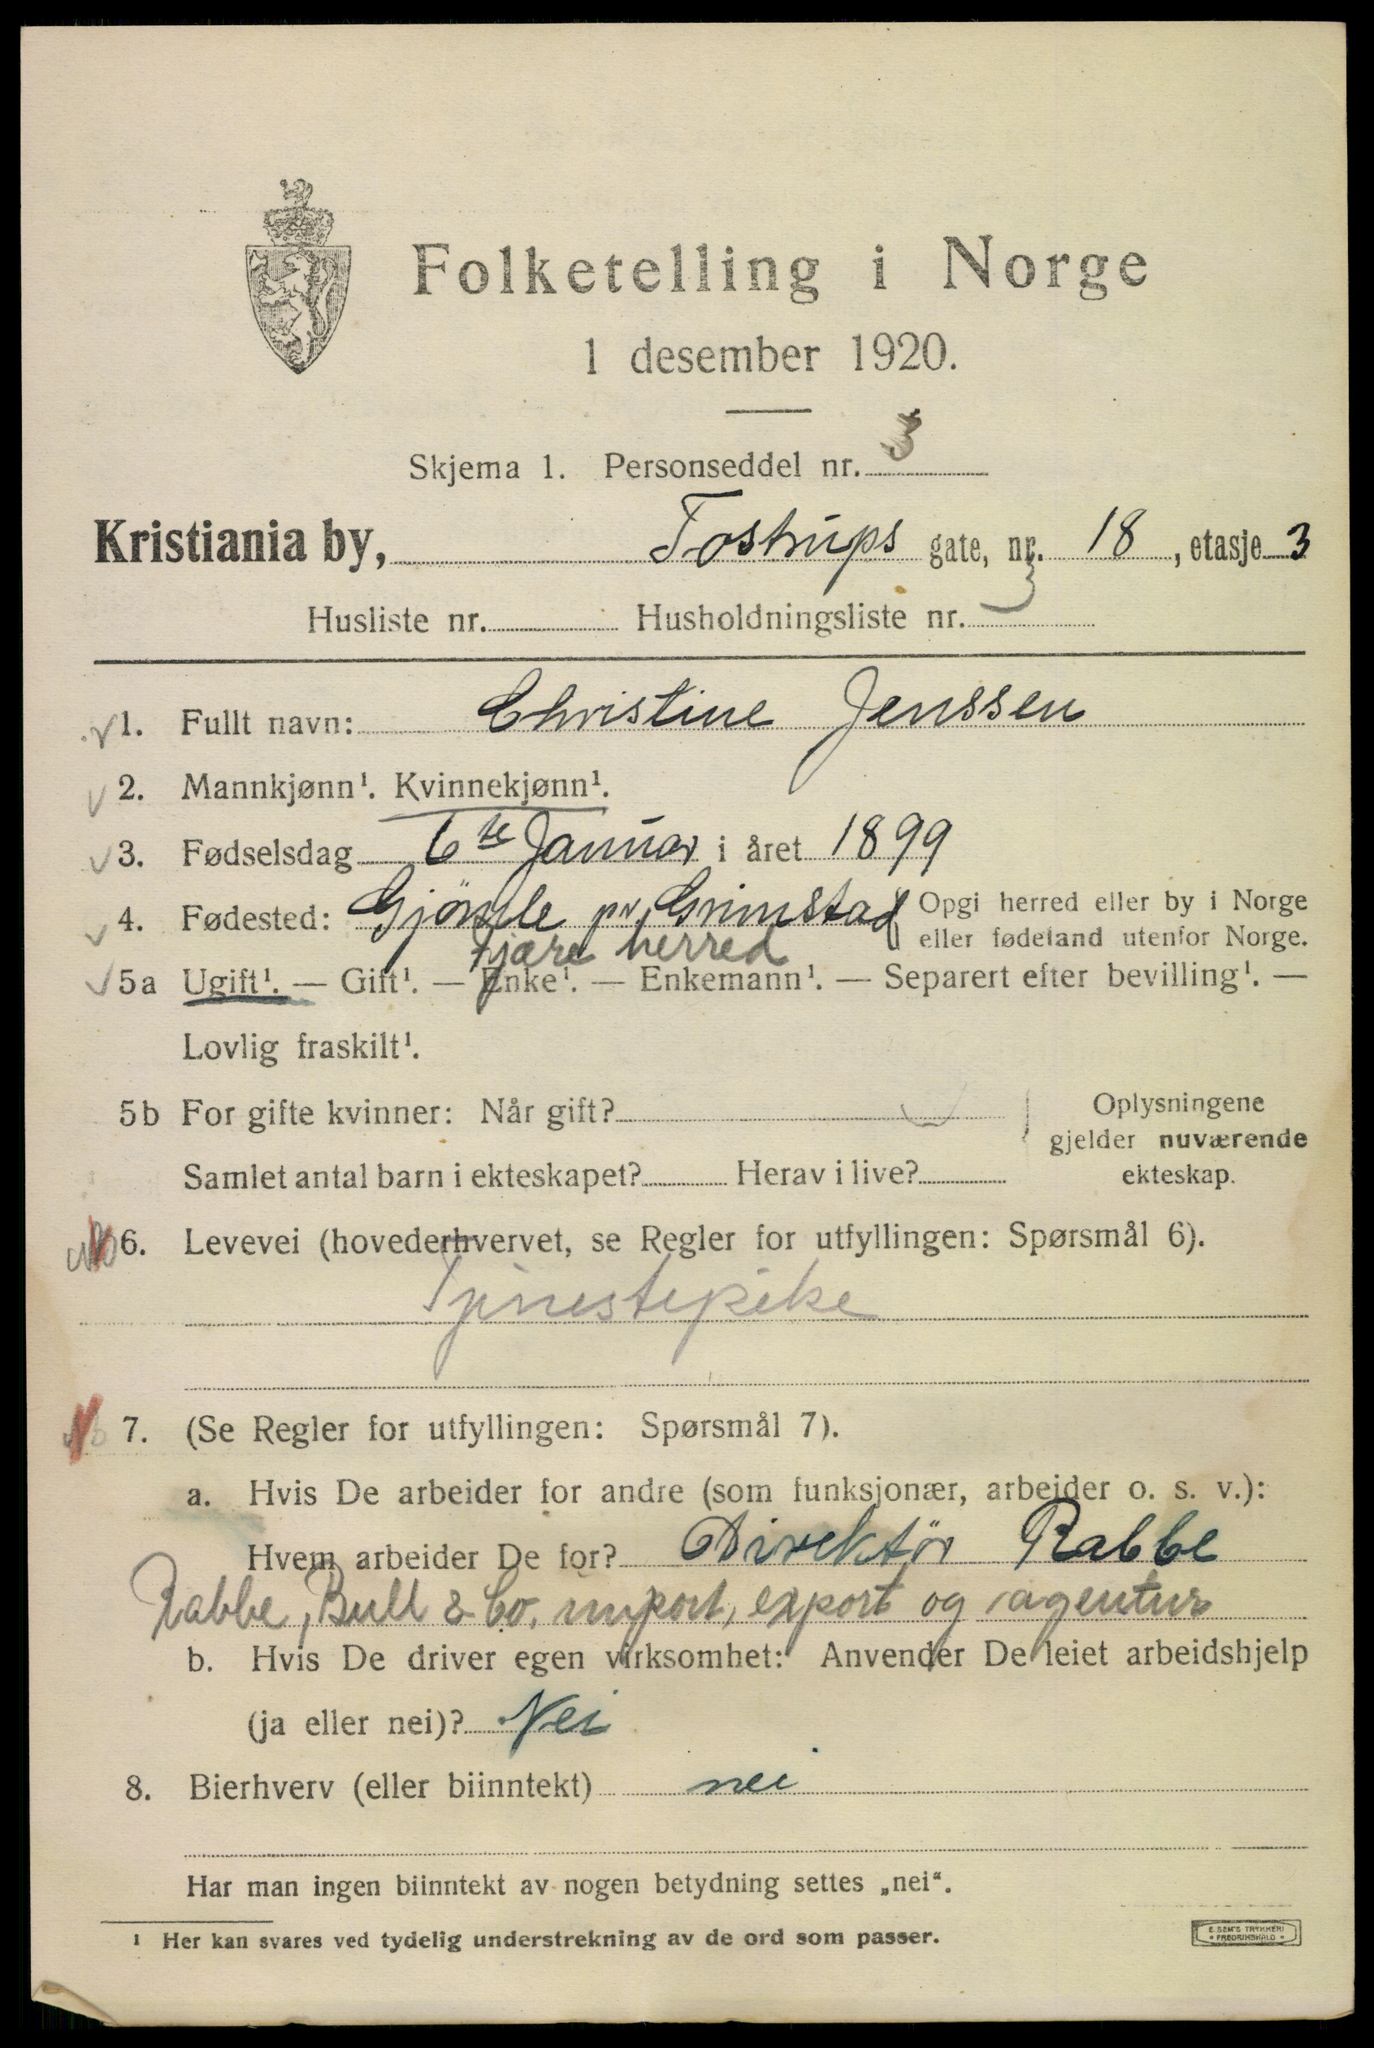 Folketelling i Norge
1 desember 1920.
Skjema 1. Personseddel nr. 3
Kristiania by, Tostrups gate, nr. 18, etasje 3
Husliste nr. Husholdningsliste nr. 3
1. Fullt navn: Christine Jenssen
2. Mannkjønn¹. Kvinnekjønn¹.
3. Fødselsdag 6te Januar i året 1899
4. Fødested: Gjömle pr. Grimstad Opgi herred eller by i Norge
eller fødeland utenfor Norge.
Fjære herred
5a Ugift¹. — Gift¹. — Enke¹. — Enkemann¹. — Separert efter bevilling¹. —
Lovlig fraskilt¹.
5b For gifte kvinner: Når gift?
Samlet antal barn i ekteskapet? Herav i live?
Oplysningene
gjelder nuværende
ekteskap.
6. Levevei (hovederhvervet, se Regler for utfyllingen: Spørsmål 6).
Tjenestepike
7. (Se Regler for utfyllingen: Spørsmål 7).
a. Hvis De arbeider for andre (som funksjonær, arbeider o. s. v.):
Hvem arbeider De for? Direktör Rabbe
Rabbe, Bull & Co. import, export og agentur
b. Hvis De driver egen virksomhet: Anvender De leiet arbeidshjelp
(ja eller nei)? Nei
8. Bierhverv (eller biinntekt) nei
Har man ingen biinntekt av nogen betydning settes „nei“.
¹ Her kan svares ved tydelig understrekning av de ord som passer.
E. SEM'S TRYKKERI
FREDRIKSHALD